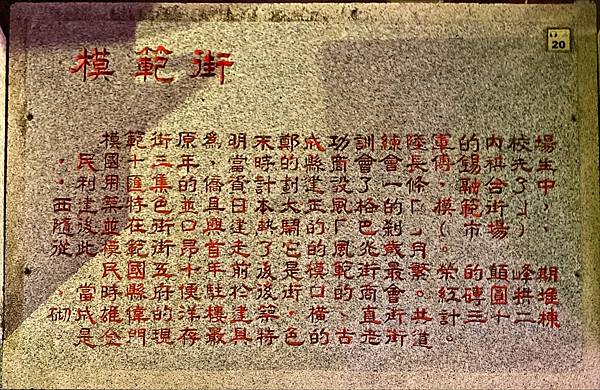 模範街
模範街原為明末鄭成功訓練陸軍的內校場
．民國十三年，當時的縣商會會長傅錫科先生
．利用匯集的僑資計劃建設了一條、融合了中
西建築特色並具日本大正風格的「模範街」．
隨後並在街口興建熱鬧的「巴剎」(市場)
從此模範街昂首走了它的風 月。
民國五十年前後是模範街最繁榮的顛峰期
．當時縣府便駐於後街口的商會。紅磚圓拱堆
砌成雄偉的洋樓建築。橫、直街井計三十二棟
是金門現存最具特色的古老街道。
20